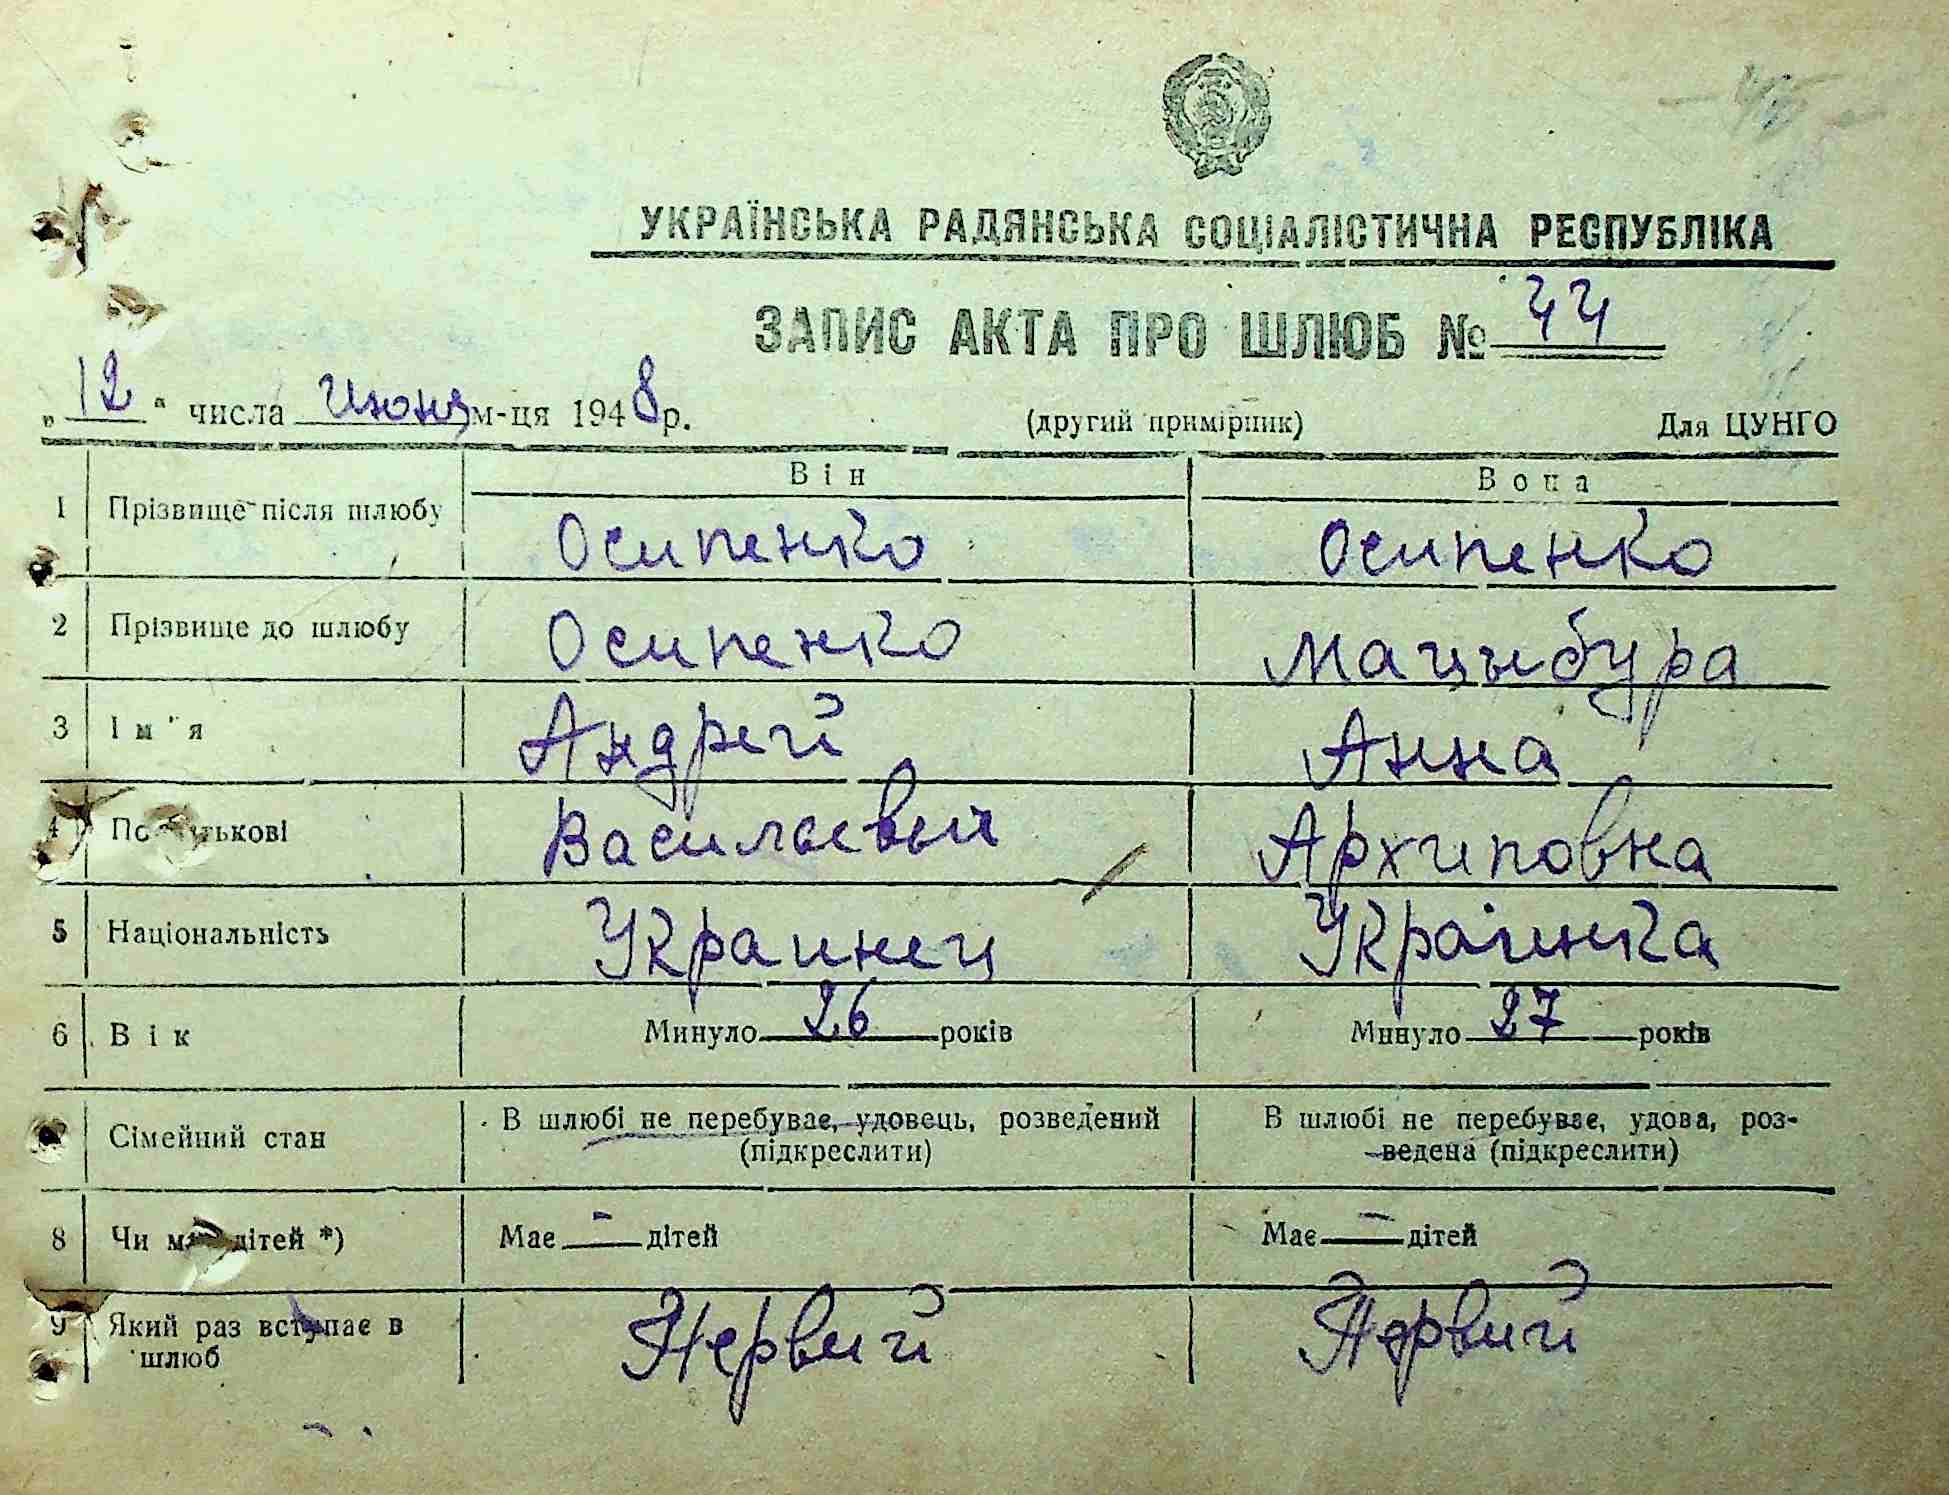 УКРАЇНСЬКА РАДЯНСЬКА СОЦІАЛІСТИЧНА РЕСПУБЛІКА
ЗАПИС АКТА ПРО ШЛЮБ № 44
„12“ числа июня м-ця 1948 р. (другий примірник) Для ЦУНГО
Він Вона
1 Прізвище після шлюбу Осипенко Осипенко
2 Прізвище до шлюбу Осипенко Мацыбура
3 Ім'я Андрей Анна
4 По батькові Васильевич Архиповна
5 Національність Украинец Украинка
6 Вік Минуло 26 років Минуло 27 років
Сімейний стан В шлюбі не перебуває, удовець, розведений В шлюбі не перебуває, удова, роз-
(підкреслити) ведена (підкреслити)
8 Чи має дітей *) Має - дітей Має - дітей
9 Який раз вступає в Первий Первий
шлюб